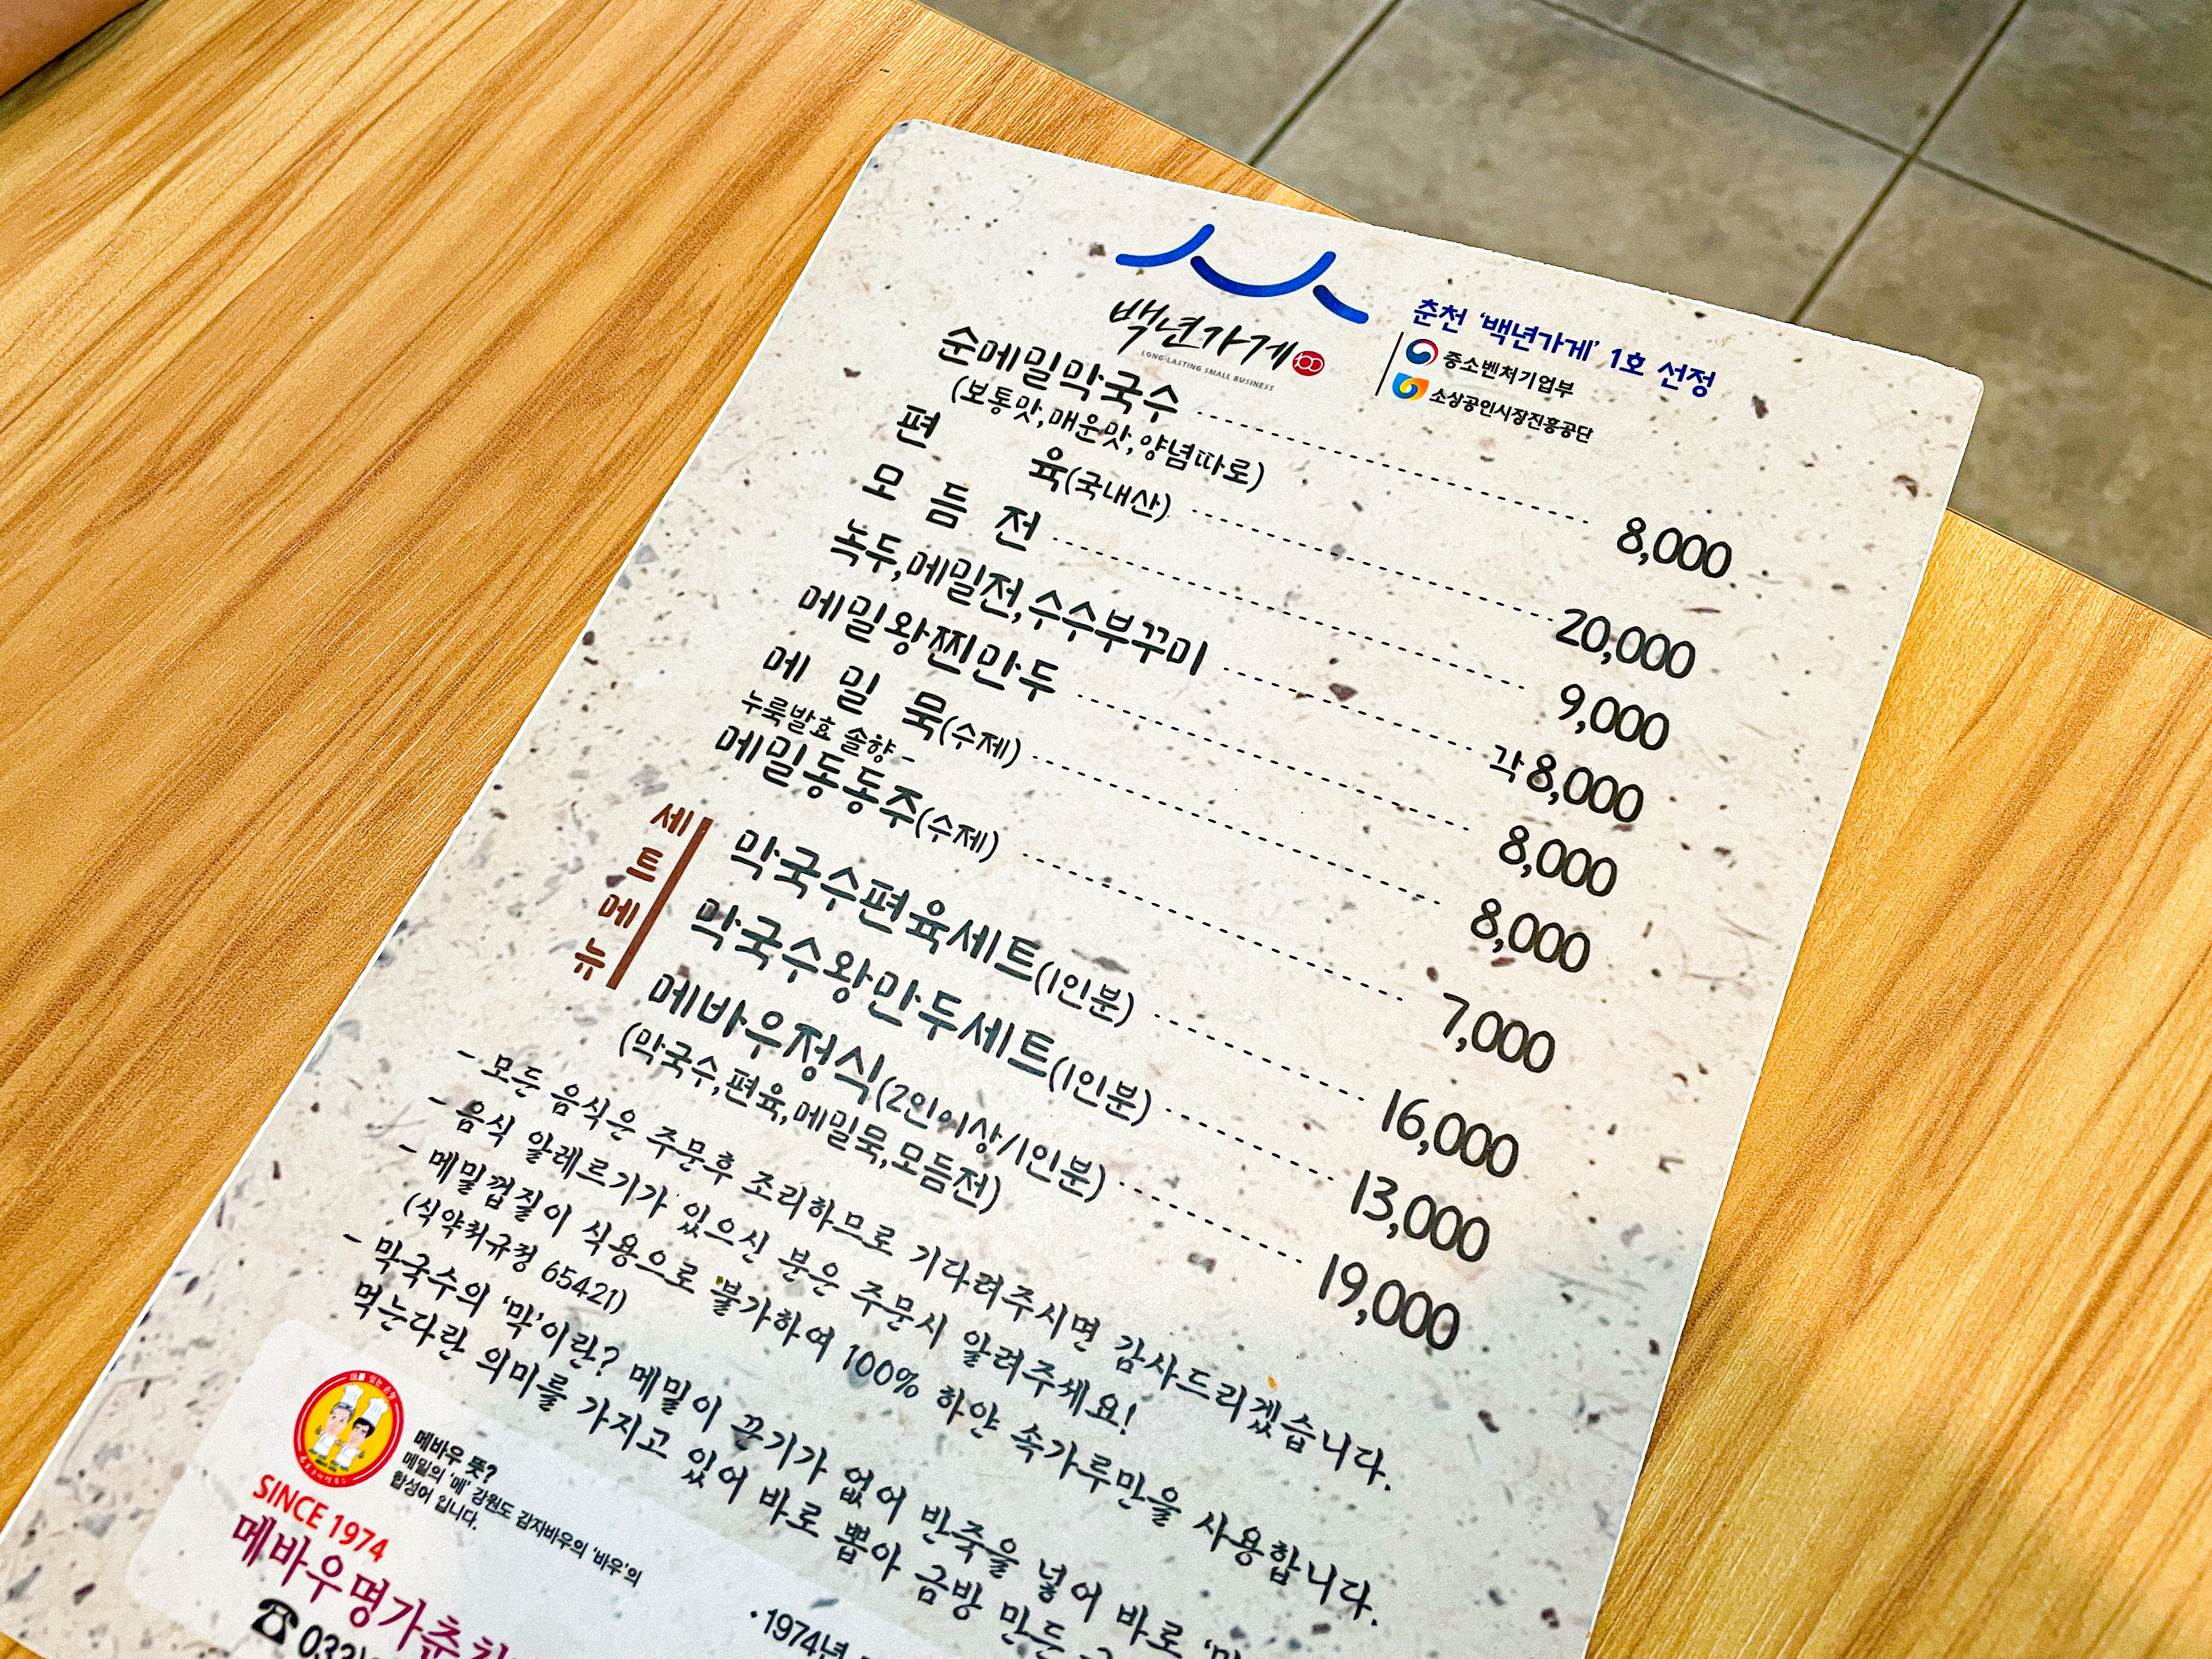 백년가게
LONG-LASTING SMALL BUSINESS
춘천 '백년가게' 1호 선정
중소벤처기업부
소상공인시장진흥공단
순메밀막국수 8,000
(보통맛,매운맛,양념따로)
편 육(국내산) 20,000
모 듬 전 9,000
녹두,메밀전,수수부꾸미 각8,000
메밀왕찐만두 8,000
메 밀 묵(수제) 8,000
누룩발효 솔향-
메밀동동주(수제) 7,000
세트메뉴
막국수편육세트(1인분) 16,000
막국수왕만두세트(1인분) 13,000
메바우정식(2인이상/1인분) 19,000
(막국수,편육,메밀묵,모듬전)
- 모든 음식은 주문후 조리하므로 기다려주시면 감사드리겠습니다.
- 음식 알레르기가 있으신 분은 주문시 알려주세요!
- 메밀껍질이 식용으로 불가하여 100% 하얀 속가루만을 사용합니다.
(식약처규정 65421)
- 막국수의 '막'이란? 메밀이 끈기가 없어 반죽을 넣어 바로
먹는다란 의미를 가지고 있어 바로 뽑아 금방 만든
메바우 뜻?
메밀의 '메' 강원도 감자바우의 '바우'의
합성어 입니다.
SINCE 1974
메바우명가춘천
☎ 033)
·1974년